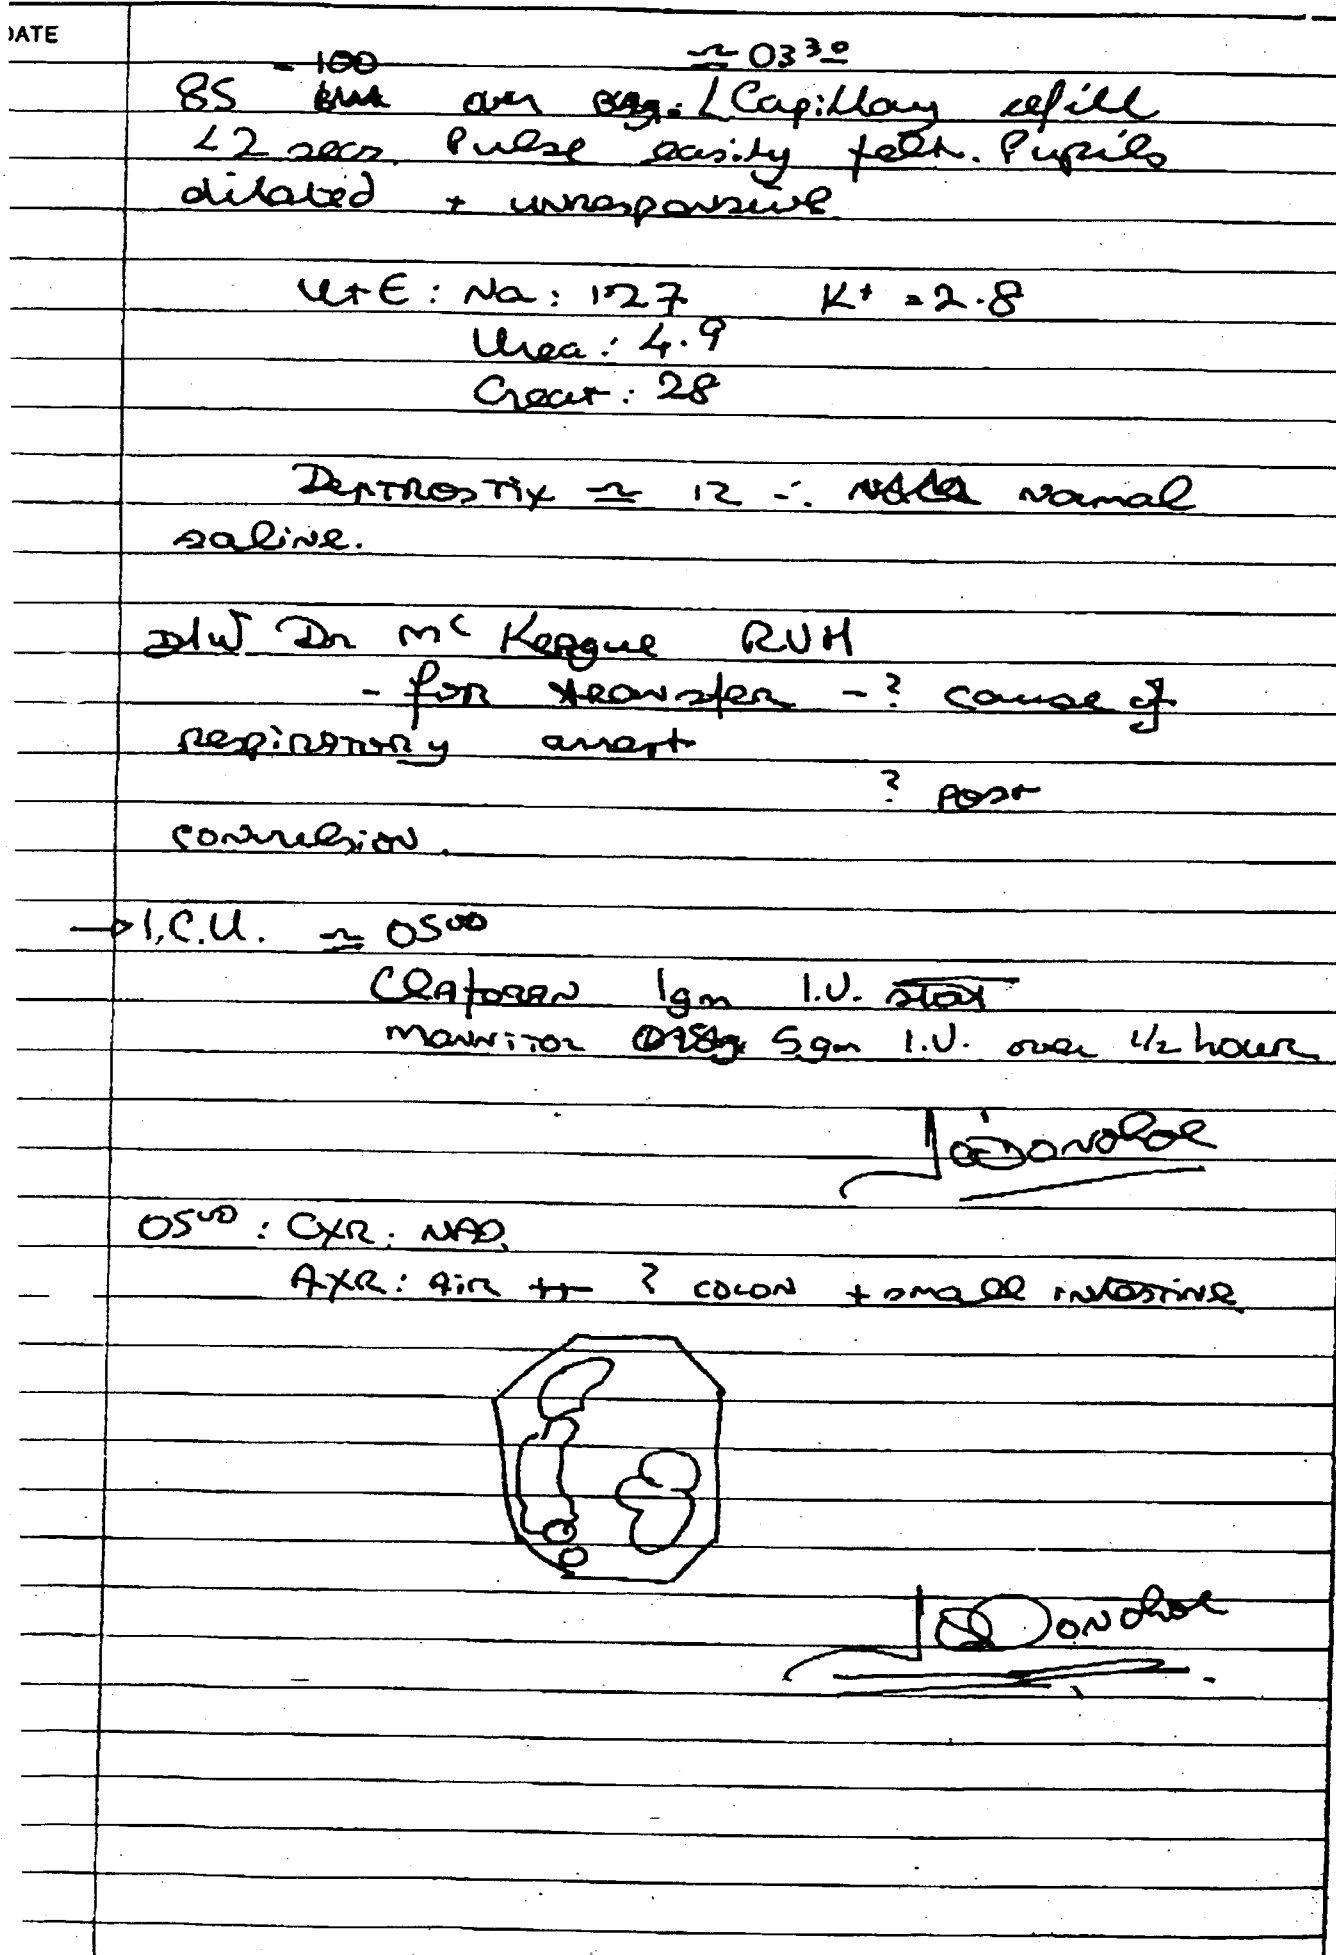 DATE
- 100 ≃ 03³⁰
85 on Bag. Capillary refill
<2 secs. Pulse easily felt. Pupils
dilated + unresponsive
U+E: Na: 127 K+ = 2.8
Urea: 4.9
Creat: 28
Dextrostix ≃ 12 ∴ normal
saline.
D/W Dr Mc Keague RVH
- for transfer - ? cause of
respiratory arrest
? post
convulsion.
→ I.C.U. ≃ 05⁰⁰
Claforan 1gm I.V. stat
Mannitol 5gm I.V. over 1/2 hour
J O'Donohoe
05⁰⁰: CXR: NAD.
AXR: Air ++ ? colon + small intestine
J O'Donohoe